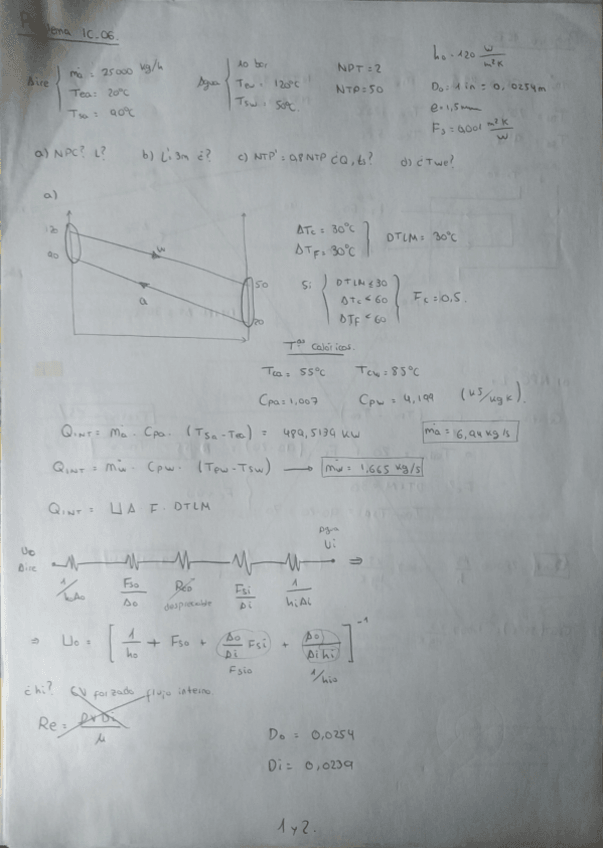 Problema IC.06.
Aire { ṁa = 25000 kg/h
Tea = 20ºC
Tsa = 90ºC
Agua { 10 bar
Tew = 120ºC
Tsw = 50ºC
NPT = 2
NTP = 50
ho = 120 W/m²K
Do = 1 in = 0,0254 m
e = 1,5 mm
Fs = 0,001 m²K/W
a) NPC? L? b) L: 3m ¿? c) NTP' = 0,8 NTP ¿Q, ts? d) ¿Twe?
a)
120
90
w
a
50
20
ΔTc = 30ºC
ΔTF = 30ºC
DTLM = 30ºC
Si { DTLM ≤ 30
ΔTc < 60
ΔTF < 60
Fc = 0,5.
Tªs Calóricas.
Tca = 55ºC Tcw = 85ºC
Cpa = 1,007 Cpw = 4,199 (kJ/kg K).
QINT = ṁa · Cpa · (Tsa - Tea) = 489,5139 kW
ṁa = 6,94 kg/s
QINT = ṁw · Cpw · (Tew - Tsw) → ṁw = 1,665 kg/s
QINT = U A F · DTLM
Uo
Aire
agua
Ui
⇒
1/hoAo Fso/Ao Rco Fsi/Ai 1/hiAi
despreciable
⇒ Uo = [ 1/ho + Fso + Ao/Ai Fsi + Ao/Aihi ]⁻¹
Fsio
1/hio
¿hi? CV forzado flujo interno.
Re = ρvDi/μ
Do = 0,0254
Di = 0,0239
1 y 2.